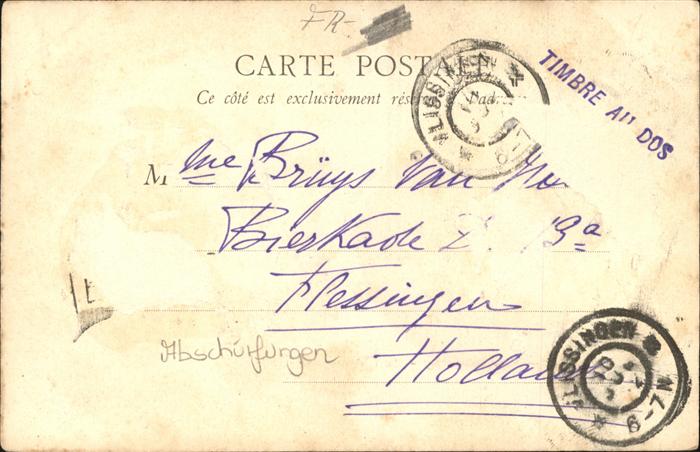 FR-
CARTE POSTALE
Ce côté est exclusivement rés
TIMBRE AU DOS
VLISSINGEN
Mme Brüys Van
Bierkade 13a
Vlessingen
Holland
Abschürfungen
VLISSINGEN
6-7N